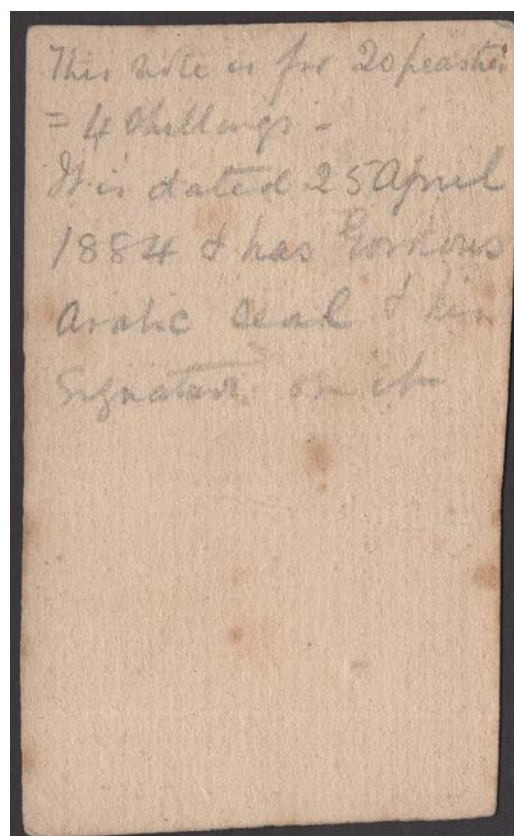 This note is for 20 peastres
= 4 Shillings -
It is dated 25 April
1884 & has Gordons
Arabic Seal & his
Signature on it